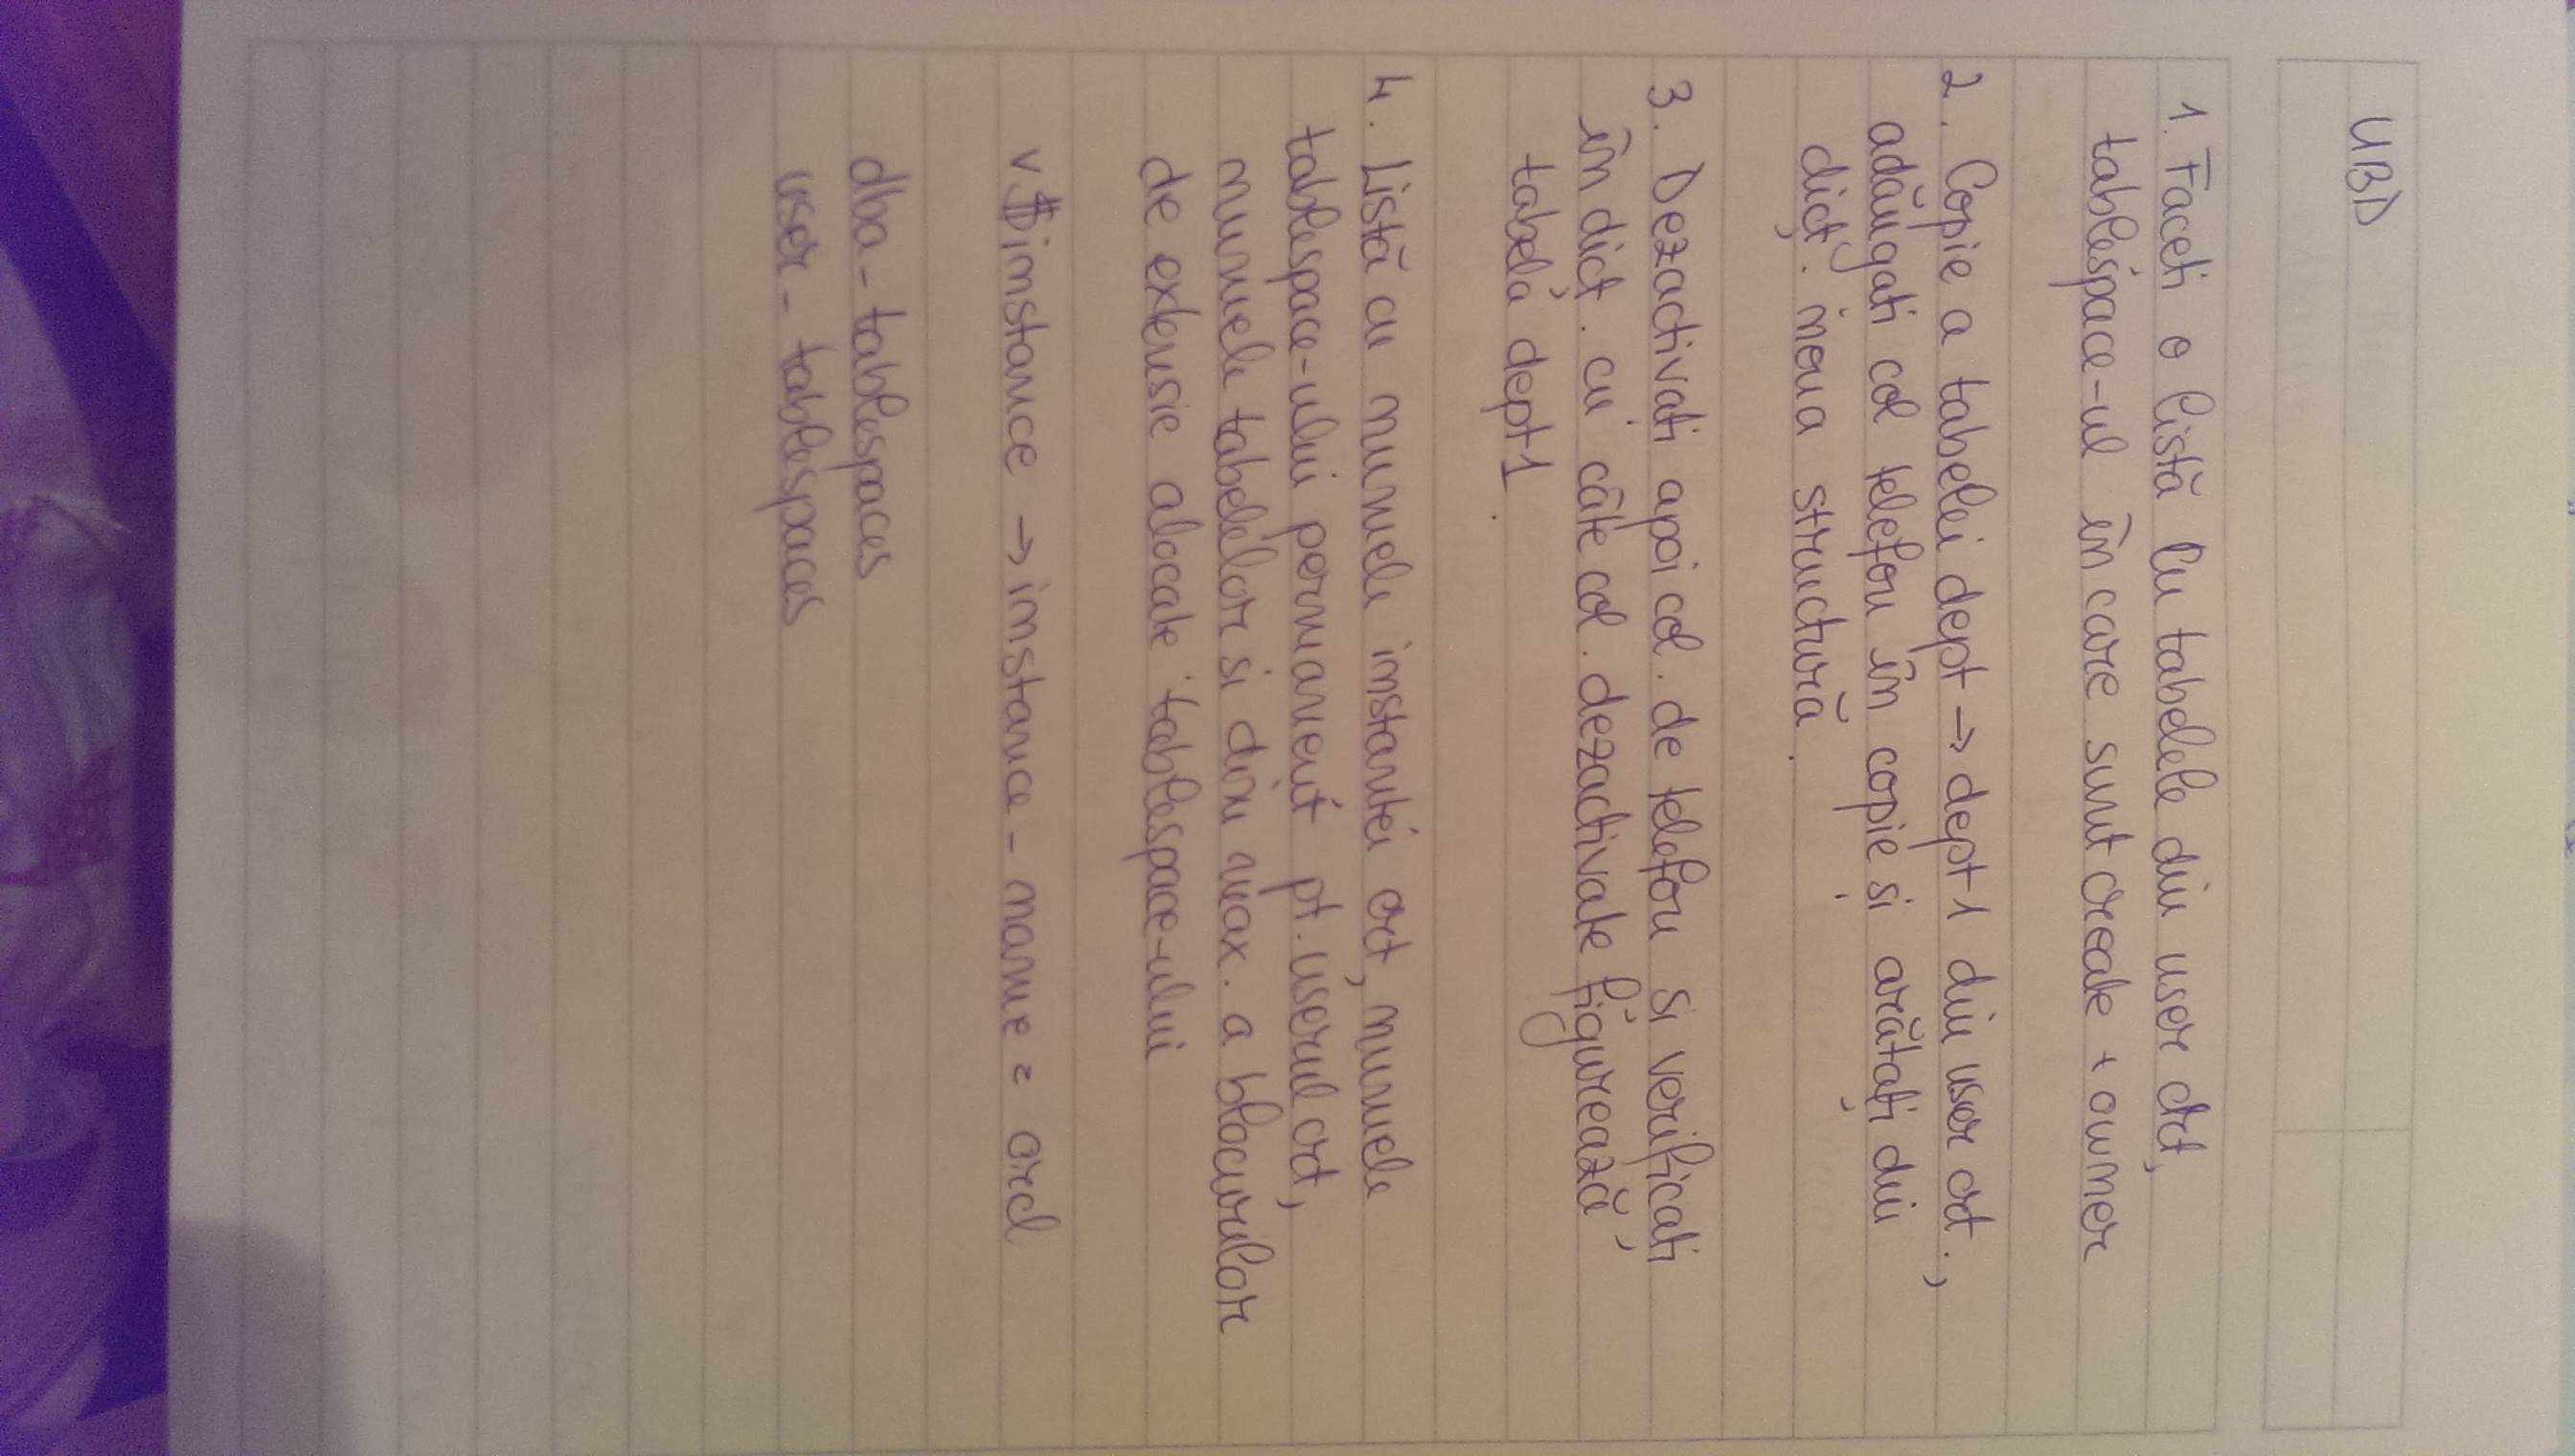 UBD
1. Faceti o listă cu tabelele din user crt,
tablespace-ul în care sunt create + owner
2. Copie a tabelei dept → dept1 din user crt.,
adăugati col telefon în copie si arătați din
dict. noua structură.
3. Dezactivati apoi col. de telefon si verificati
în dict. cu câte col. dezactivate figurează
tabela dept1.
4. Listă cu numele instantei crt, numele
tablespace-ului permanent pt. userul crt,
numele tabelelor si dim max. a blocurilor
de extensie alocate tablespace-ului
v$instance → instance-name = orcl
dba-tablespaces
user-tablespaces